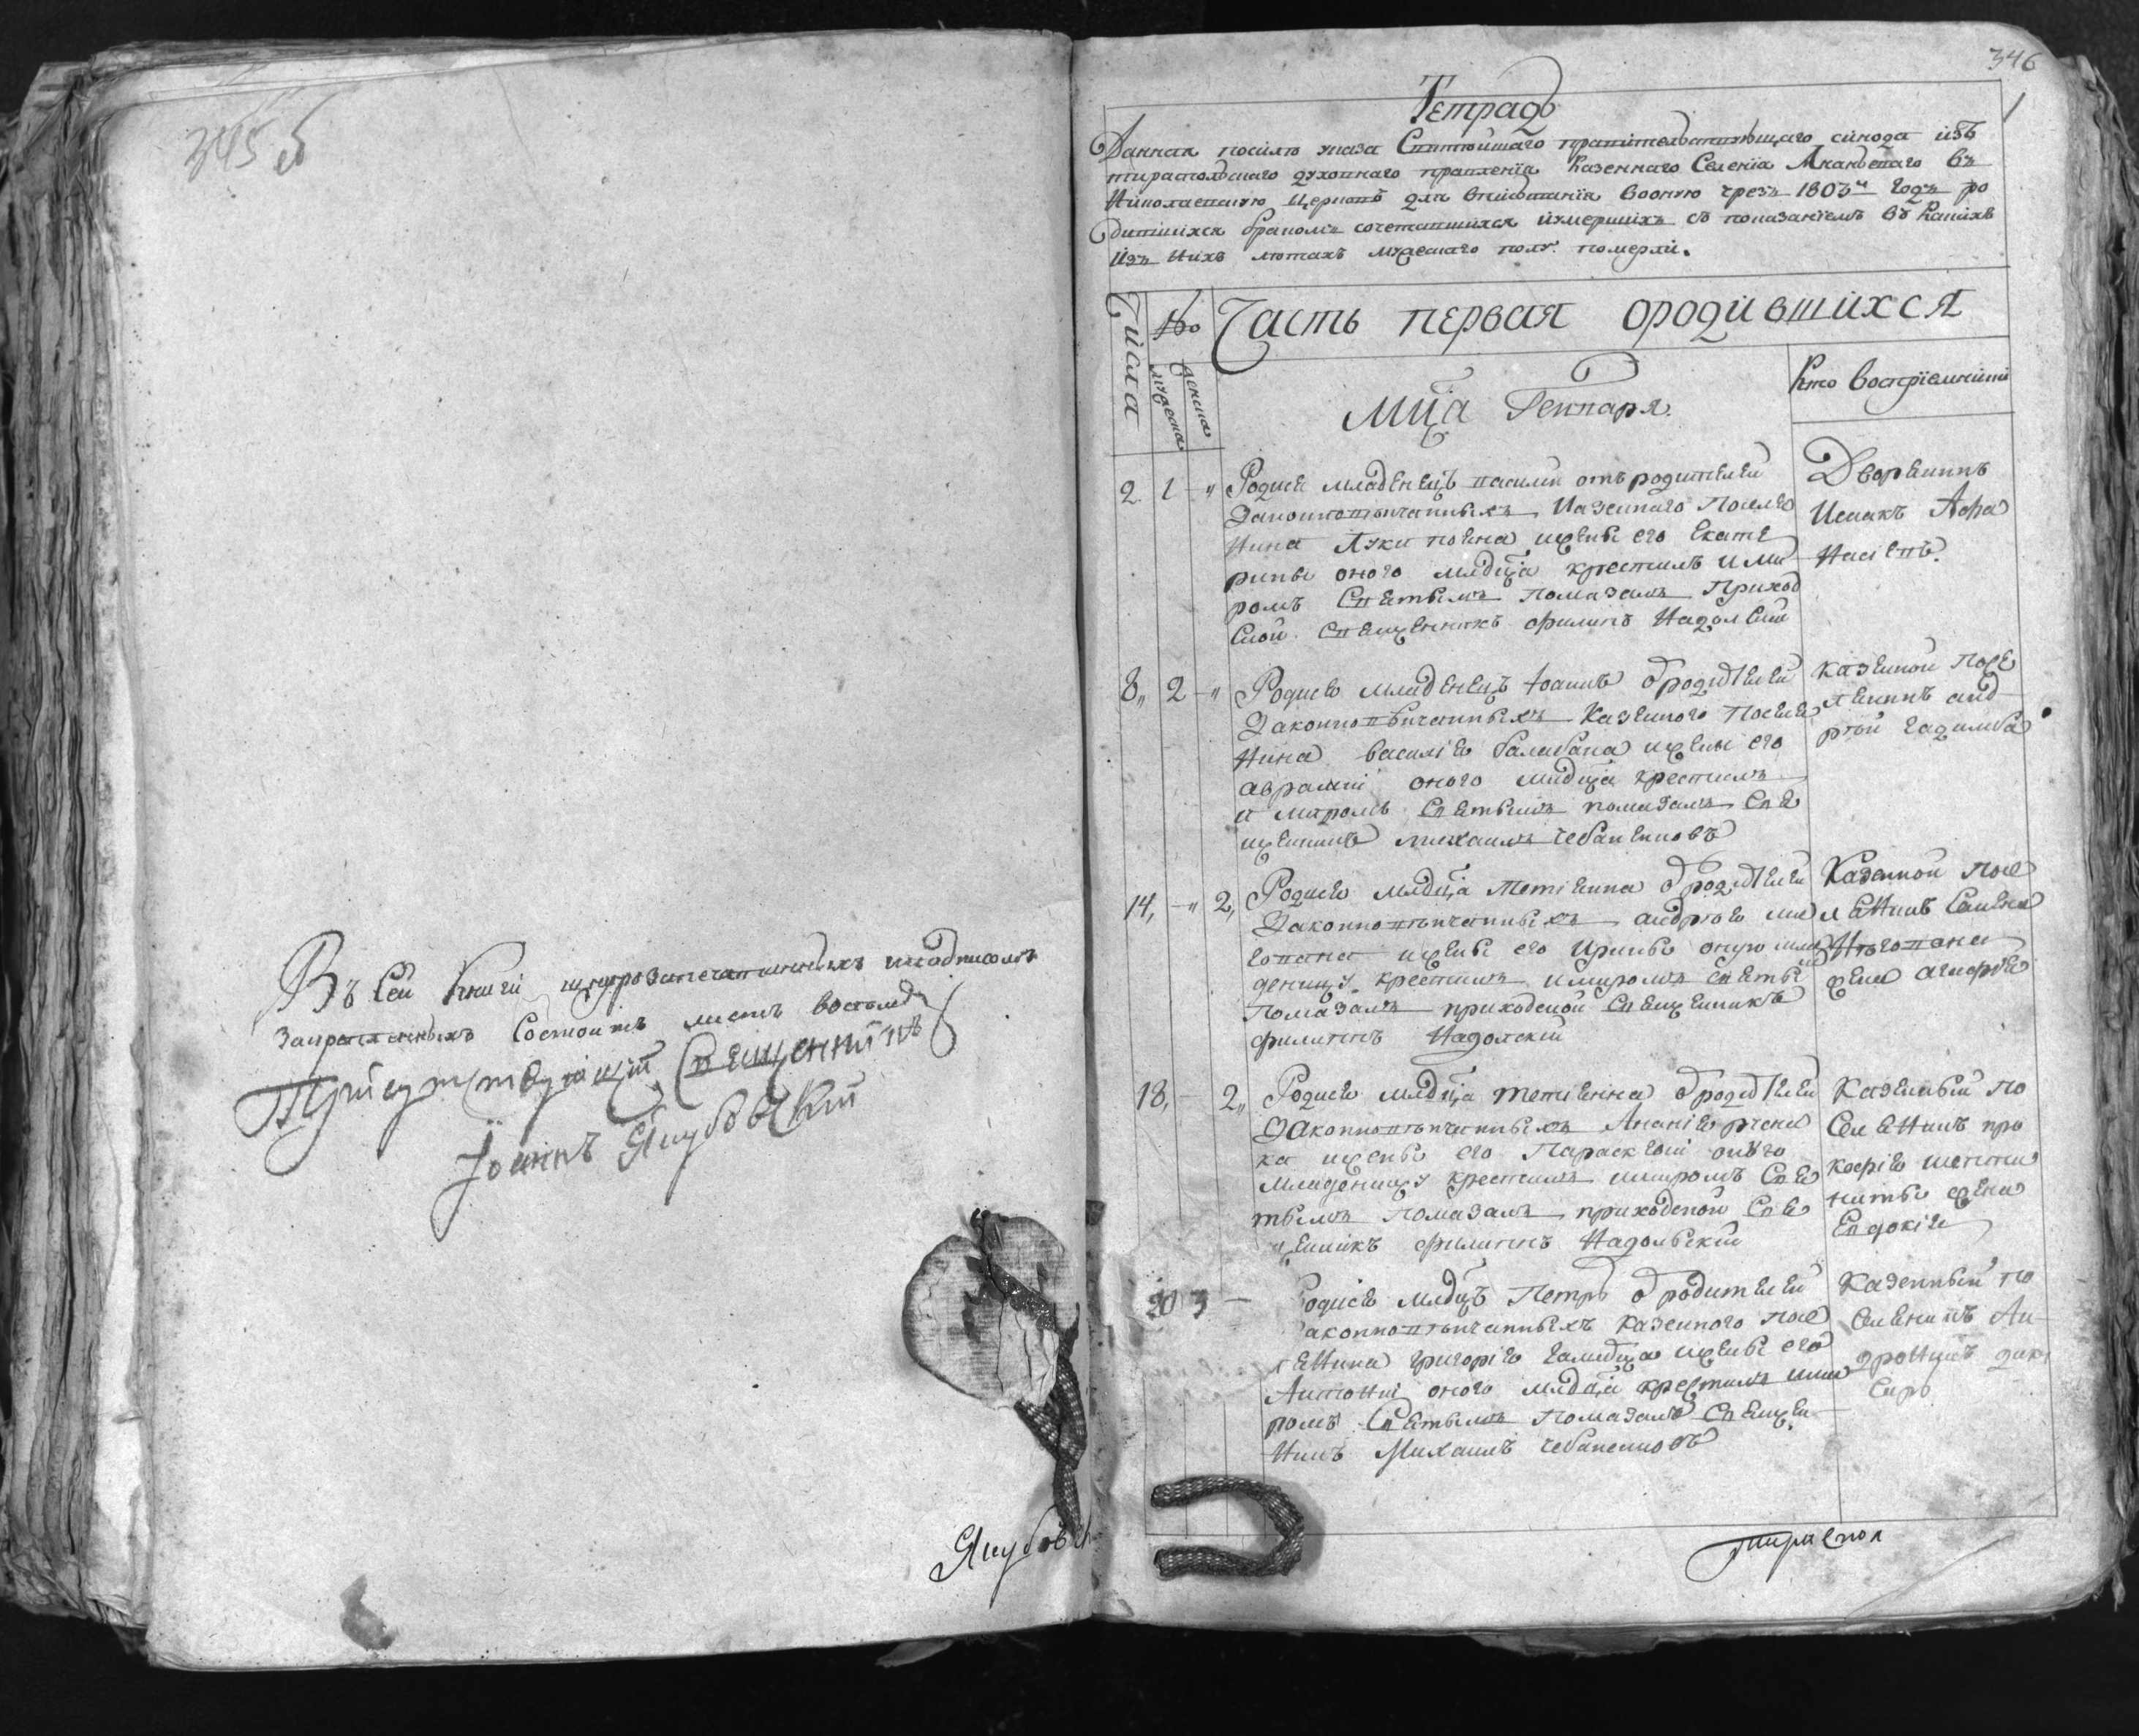 345 б
Въ сей книги шнурозапечатанныхъ инадписомъ
Закрепленныхъ Состоитъ листъ восемъ
Присудствующїй Священникъ
Іоаннъ Якубовскїй
Якубовск
346
1
Тетрадь
Данная посилѣ указа Святѣйшаго правительствующаго сѵнода изъ
тираспольскаго духовнаго правленїя Казеннаго Селенїя
Николаевскую Церковь для вписыванїя вооную чрезъ 1803й Годъ ро
дившихся бракомъ сочетавшихся иумершихъ съ показанїемъ въ Какихъ
изъ нихъ лѣтахъ мужескаго полу померли.
Числа
No
Часть первая ородившихся
мужеска
женска
Мца Генваря
Кто воспрїемники
2 1 " Родися младенецъ василий отъ родителей
Законновѣнчанныхъ Казеннаго Поселя
нина Луки ижены его Екате
рины оного младца крестилъ и ми
ромъ Святымъ помазалъ Приход
ской Священникъ филипъ Надолский
Дворянинъ
Исаакъ Афа
насіевъ
8,, 2 " Родися младенецъ Іоаннъ Ѿ родителей
Законновѣнчанныхъ Казенного Поселя
нина василїя балабана ижены его
оного младца крестилъ
и миромъ Святымъ помазалъ Свя
щенникъ михаилъ чебаненковъ
казенной посе
ленинъ анд
рѣй
14, " 2, Родися младца Ѿ родителей
Законновѣнчанныхъ андрѣя
ижены его Ирины оную мла
деницу крестилъ имиромъ Святы
помазалъ приходской Священникъ
филиппъ Надолский
Казенной посе
ленинъ Семена
жена
18, - 2,, Родися младца Ѿ родителей
Законновѣнчанныхъ Ананїя
ка ижены его Параскевїи
младеницу крестилъ имиромъ Свя
тымъ помазалъ приходской Свя
щенникъ филиппъ Надольский
Казенный по
селенинъ про
кофїя
жена
Евдокїя
20 3 - одися младцъ Петръ Ѿ родителей
аконновѣнчанныхъ казенного посе
ленина григорїя ижены его
оного младца крестилъ ими
ромъ Святымъ помазалъ Священ
никъ Михаилъ чебаненковъ
Казенный по
селенинъ Ан
дроникъ
тираспол